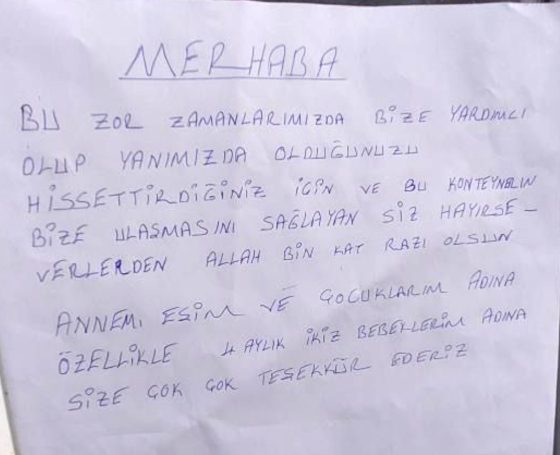 MERHABA
BU ZOR ZAMANLARIMIZDA BİZE YARDIMCI
OLUP YANIMIZDA OLDUĞUNUZU
HİSSETTİRDİĞİNİZ İÇİN VE BU KONTEYNERIN
BİZE ULAŞMASINI SAĞLAYAN SİZ HAYIRSE-
VERLERDEN ALLAH BİN KAT RAZI OLSUN
ANNEM, EŞİM VE ÇOCUKLARIM ADINA
ÖZELLİKLE 4 AYLIK İKİZ BEBEKLERİM ADINA
SİZE ÇOK ÇOK TEŞEKKÜR EDERİZ